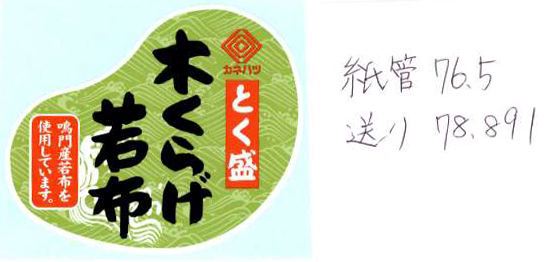 カネハツ
とく盛
木くらげ
若布
鳴門産若布を
使用しています。
紙管 76.5
送り 78.891